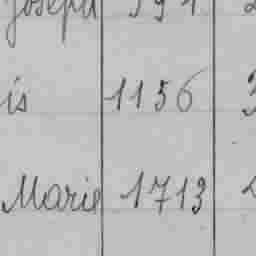 Joseph
is 1156
Marie 1713